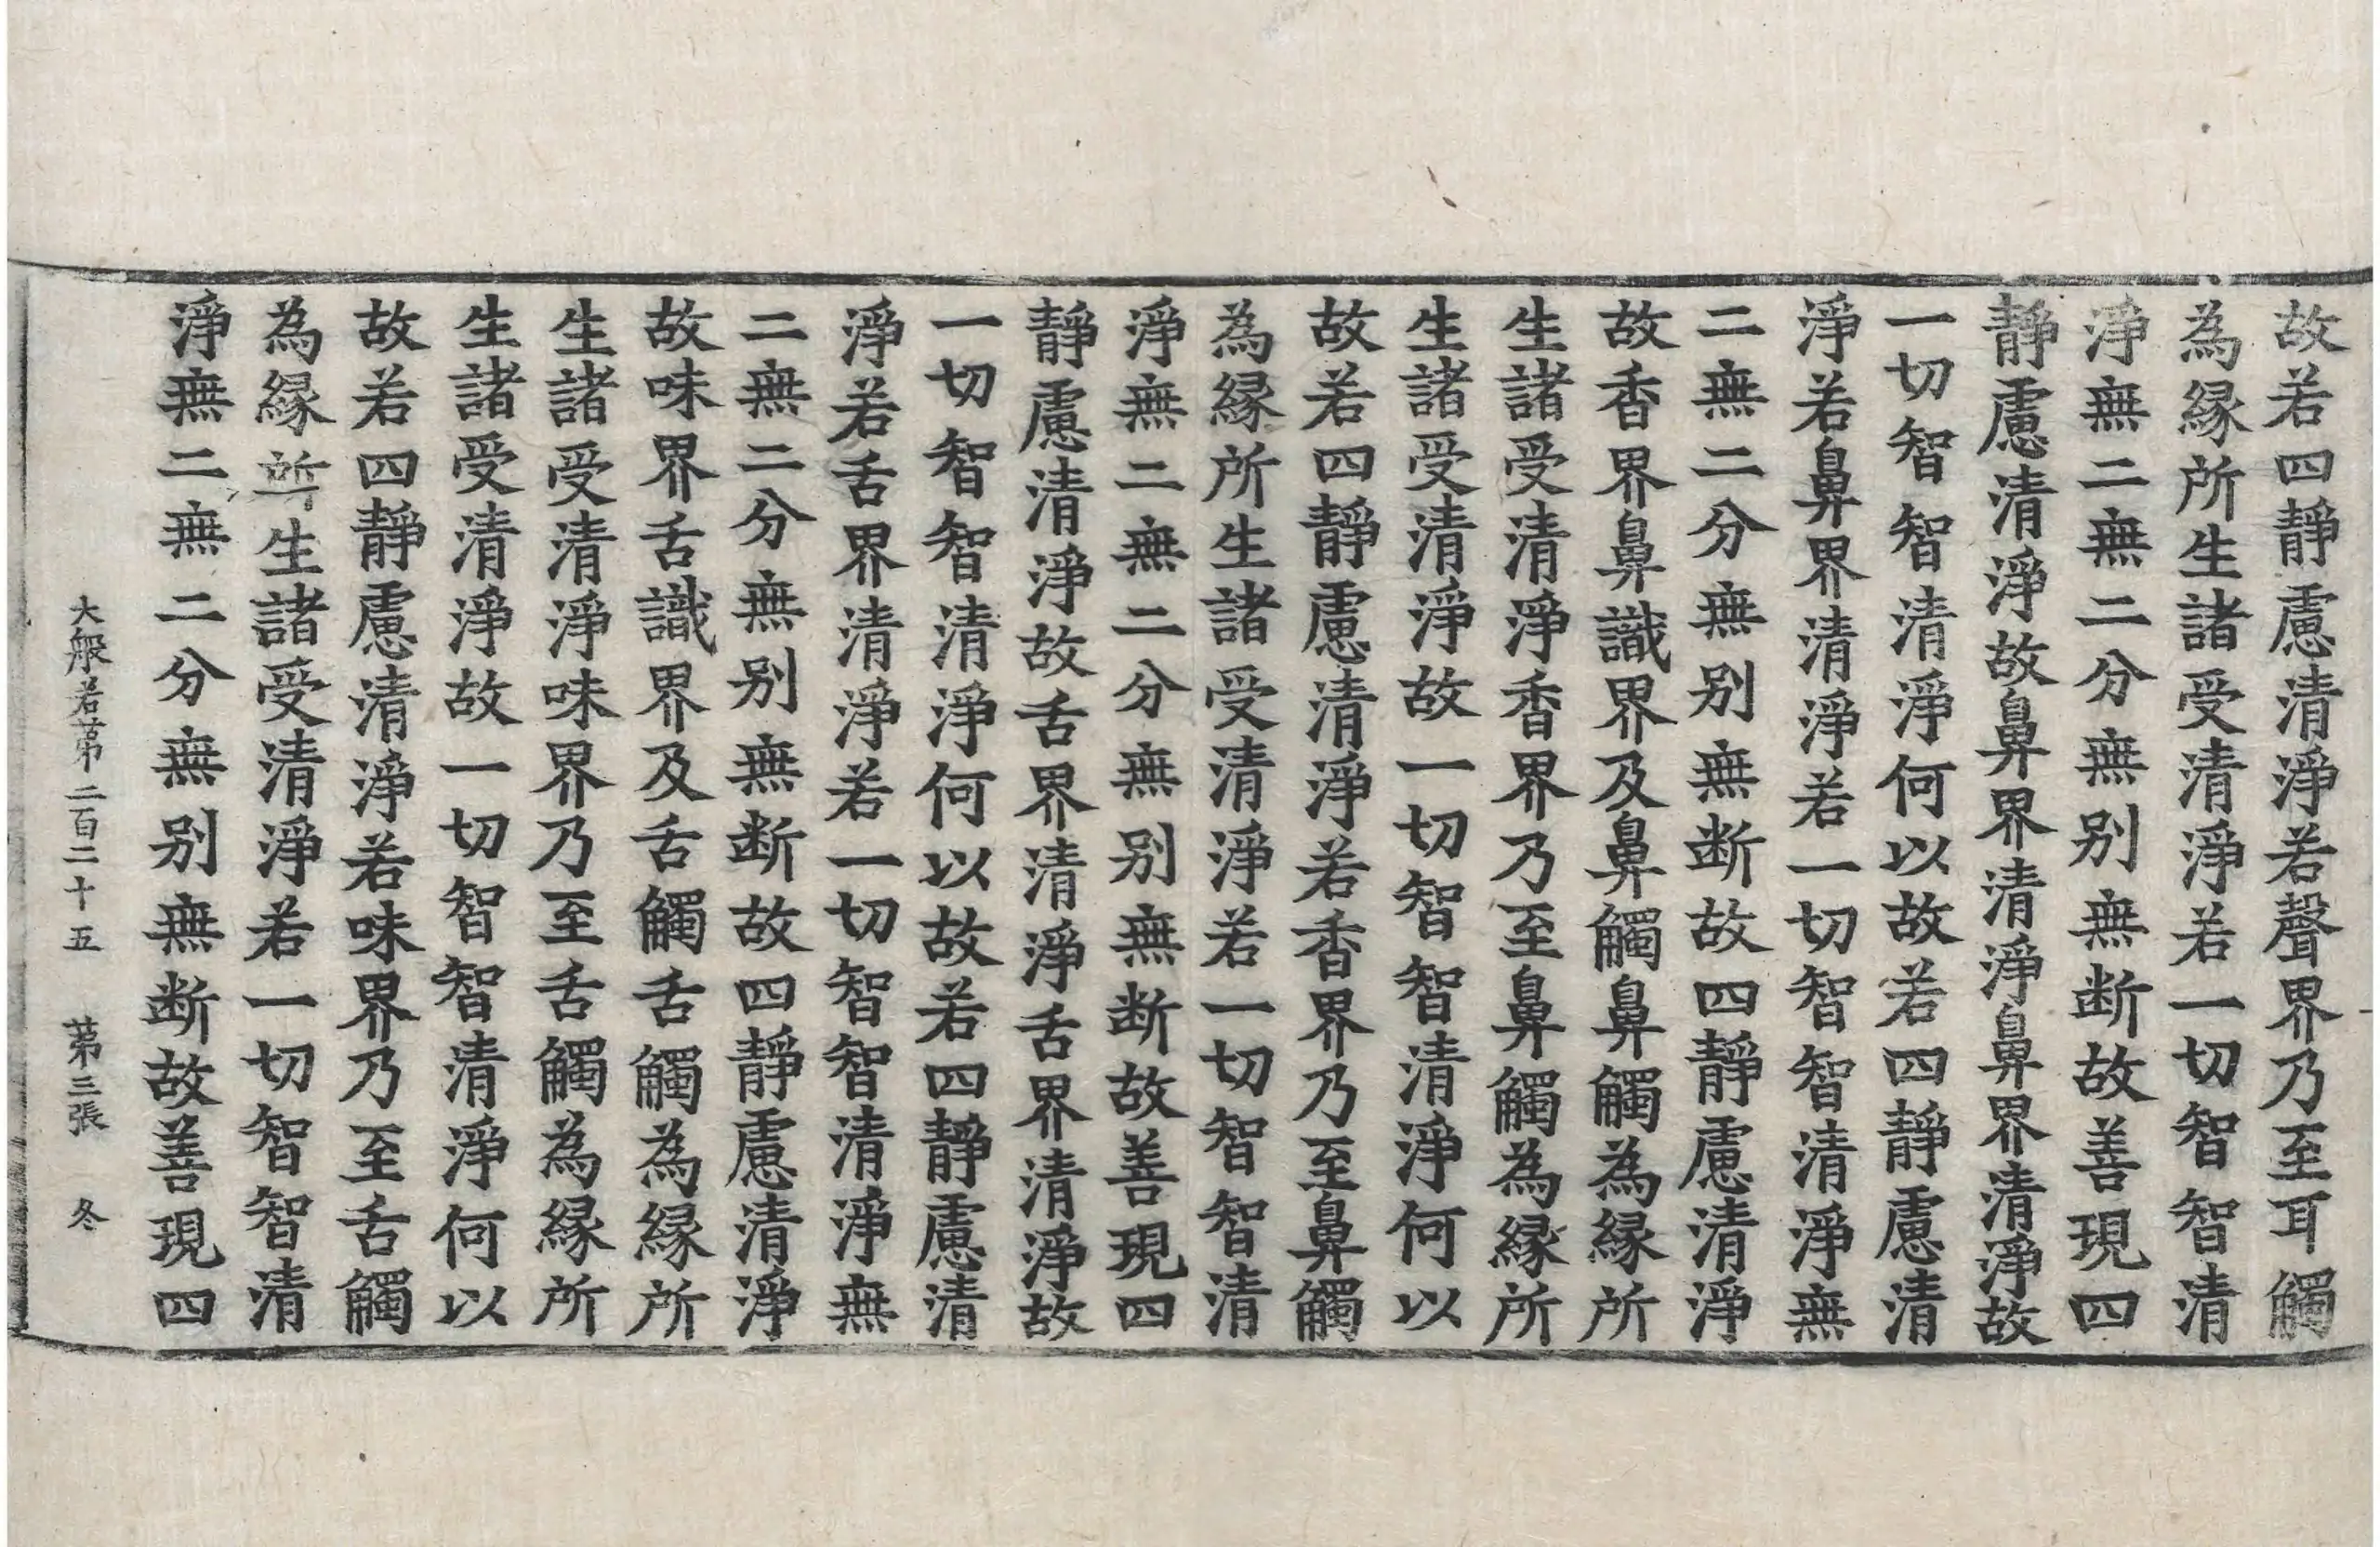 故若四靜慮清淨若聲界乃至耳觸
為緣所生諸受清淨若一切智智清
淨無二無二分無别無断故善現四
靜慮清淨故鼻界清淨鼻界清淨故
一切智智清淨何以故若四靜慮清
淨若鼻界清淨若一切智智清淨無
二無二分無别無断故四靜慮清淨
故香界鼻識界及鼻觸鼻觸為緣所
生諸受清淨香界乃至鼻觸為緣所
生諸受清淨故一切智智清淨何以
故若四靜慮清淨若香界乃至鼻觸
為緣所生諸受清淨若一切智智清
淨無二無二分無别無断故善現四
靜慮清淨故舌界清淨舌界清淨故
一切智智清淨何以故若四靜慮清
淨若舌界清淨若一切智智清淨無
二無二分無别無断故四靜慮清淨
故味界舌識界及舌觸舌觸為緣所
生諸受清淨味界乃至舌觸為緣所
生諸受清淨故一切智智清淨何以
故若四靜慮清淨若味界乃至舌觸
為緣所生諸受清淨若一切智智清
淨無二無二分無别無断故善現四
大般若苐二百二十五 苐三張 冬